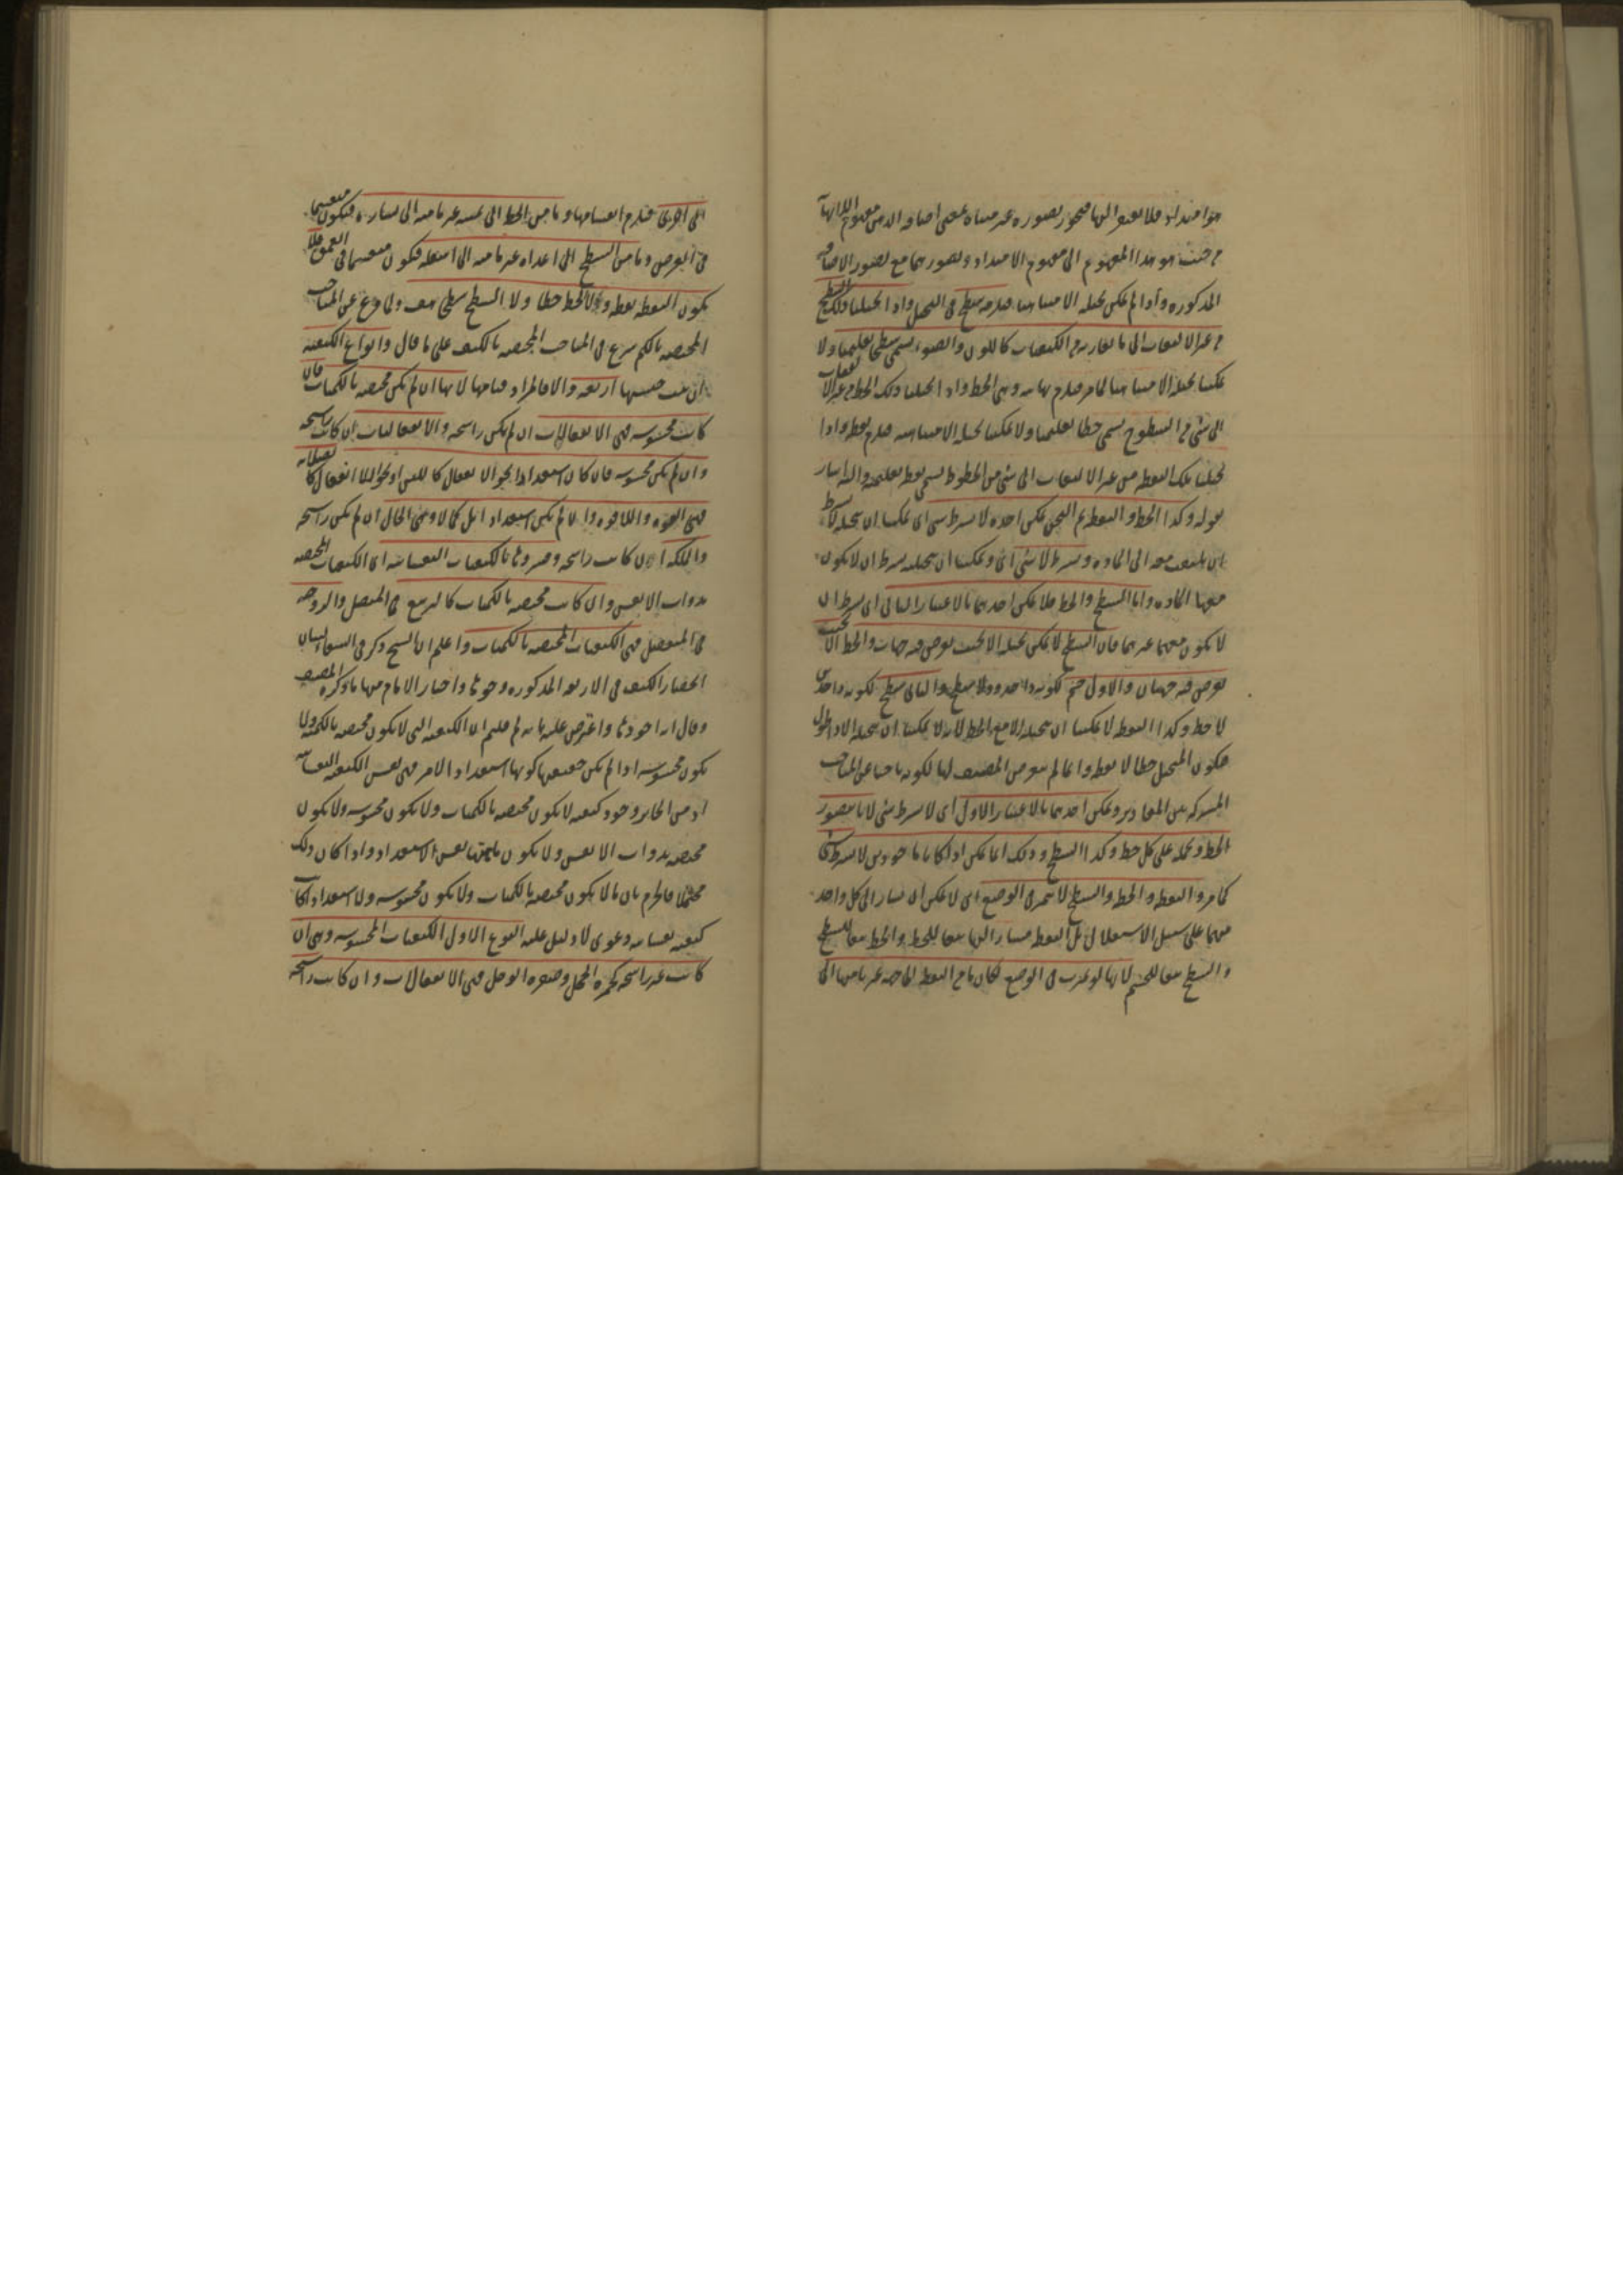 من حيث هو هذا المفهوم الى مفهوم الامتداد وتصورهما مع تصور الاضافة
المذكورة واذا لم يمكن تخيله الا متناهيا فيلزمه سطح في التخيل واذا تخيلنا ذلك السطح
من غير الالتفات الى ما يقارنه من الكيفيات كاللون والضوء يسمى سطحا تعليميا ولا
يمكننا تخيله الا متناهيا لما مر فيلزم نهايته وهي الخط واذا تخيلنا ذلك الخط من غير التفات
الى شيء من السطوح يسمى خطا تعليميا ولا يمكننا تخيله الا متناهيا فيلزم نقطة واذا
تخيلنا تلك النقطة من غير الالتفات الى شيء من الخطوط يسمى نقطة تعليمية واليه اشار
بقوله وكذا الخط والنقطة ثم الثخن يمكن اخذه لا بشرط شيء اي يمكننا ان نتخيله لا بشرط
ان يلتفت معه الى المادة وبشرط لا شيء اي ويمكننا ان نتخيله بشرط ان لا يكون
معها المادة واما السطح والخط فلا يمكن اخذهما بالاعتبار الثاني اي بشرط ان
لا يكون معهما غيرهما فان السطح لا يمكن تخيله الا بحيث يفرض فيه جهات والخط الا بحيث
يفرض فيه جهتان والاول جسم لكونه ذا حدود لا سطح والثاني سطح لكونه ذا حدين
لا خط وكذا النقطة لا يمكننا ان نتخيلها الا مع الخط لانه لا يمكننا ان نتخيلها الا ذا طول
فيكون المتخيل خطا لا نقطة وانما لم يتعرض المصنف لها لكونه باحثا عن المباحث
المشتركة بين المقادير ويمكن اخذهما بالاعتبار الاول اي لا بشرط شيء لانا نتصور
الخط ونحمله على كل خط وكذا السطح وذلك انما يمكن اذا كانا ماخوذين لا بشرط شيء
كما مر والنقطة والخط والسطح لا تتميز في الوضع اي لا يمكن ان يشار الى كل واحد
منهما على سبيل الاستقلال بل النقطة يشار اليها تبعا للخط والخط تبعا للسطح
والسطح تبعا للجسم لانها لو تميزت في الوضع لكان ما من النقطة الى جهة غير ما منها الى
الى اخرى فيلزم انقسامها وما من الخط الى يمينه غير ما منه الى يساره فيكون منقسما
في العرض وما من السطح الى اعلاه غير ما منه الى اسفله فيكون منقسما في العمق فلا
يكون النقطة نقطة ولا الخط خطا ولا السطح سطحا هف ولما فرغ عن المباحث
المختصة بالكم شرع في المباحث المختصة بالكيف على ما قال وانواع الكيفية
كانت محسوسة فهي الانفعالات ان لم يكن راسخة والانفعاليات ان كانت راسخة
وان لم يكن محسوسة فان كان استعدادا نحو الانفعال كاللين او نحو اللا انفعال كالصلابة
فهي القوة واللاقوة وان لم يكن استعدادا بل كمالا فهي الحال ان لم يكن راسخة
والملكة ان كانت راسخة وفسروها بالكيفيات النفسانية اي الكيفيات المختصة
بذوات الانفس وان كانت مختصة بالكميات كالتربيع في المتصل والزوجية
في المنفصل فهي الكيفيات المختصة بالكميات واعلم ان الشيخ ذكر في الشفا لبيان
انحصار الكيف في الاربعة المذكورة وجوها واختار الامام منها ما ذكره المصنف
وقال انه اجودها واعترض عليه بانه لم قلتم ان الكيفية التي لا يكون مختصة بالكمية ولا
يكون محسوسة اذا لم يكن حقيقتها كونها استعداد الامر فهي نفس الكيفية النفسانية
اذ من الجائز وجود كيفية لا يكون مختصة بالكميات ولا يكون محسوسة ولا يكون
مختصة بذوات الانفس ولا يكون ماهيتها نفس الاستعداد واذا كان ذلك
محتملا فالجزم بان ما لا يكون مختصة بالكميات ولا يكون محسوسة ولا استعدادا كانت
كيفية نفسانية دعوى لا دليل عليه النوع الاول الكيفيات المحسوسة وهي ان
كانت غير راسخة كحمرة الخجل وصفرة الوجل فهي الانفعالات وان كانت راسخة